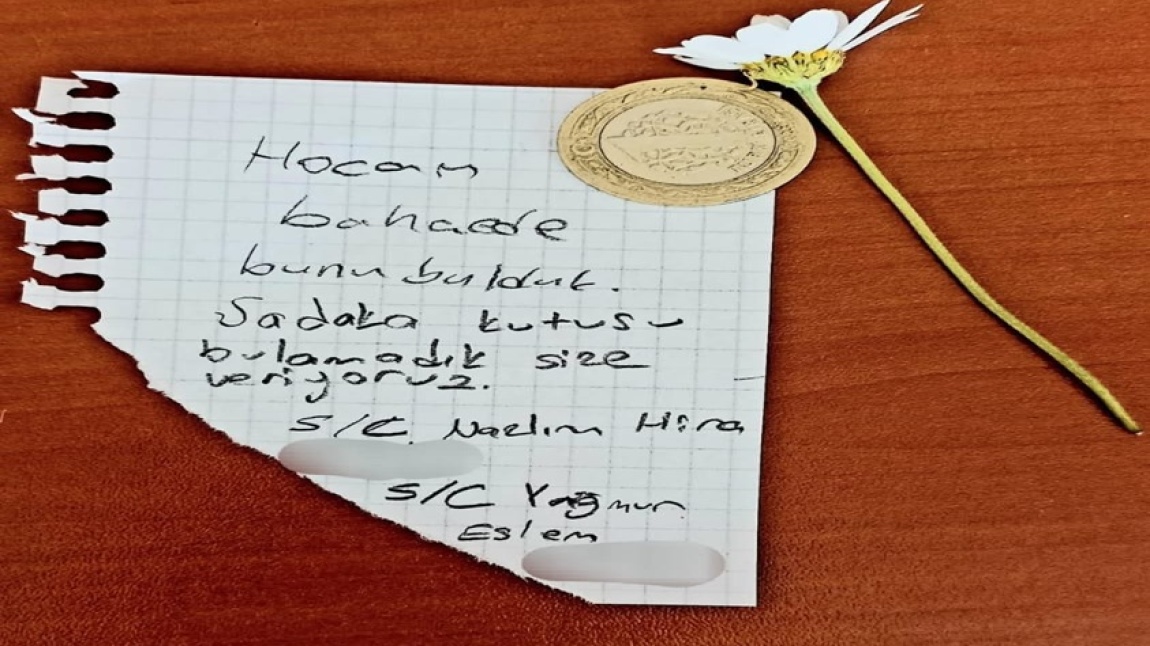 Hocam
bahcede
bunu bulduk.
Sadaka kutusu
bulamadık size
veriyoruz.
5/C Nazlım Hira
5/C Yağmur
Eslem